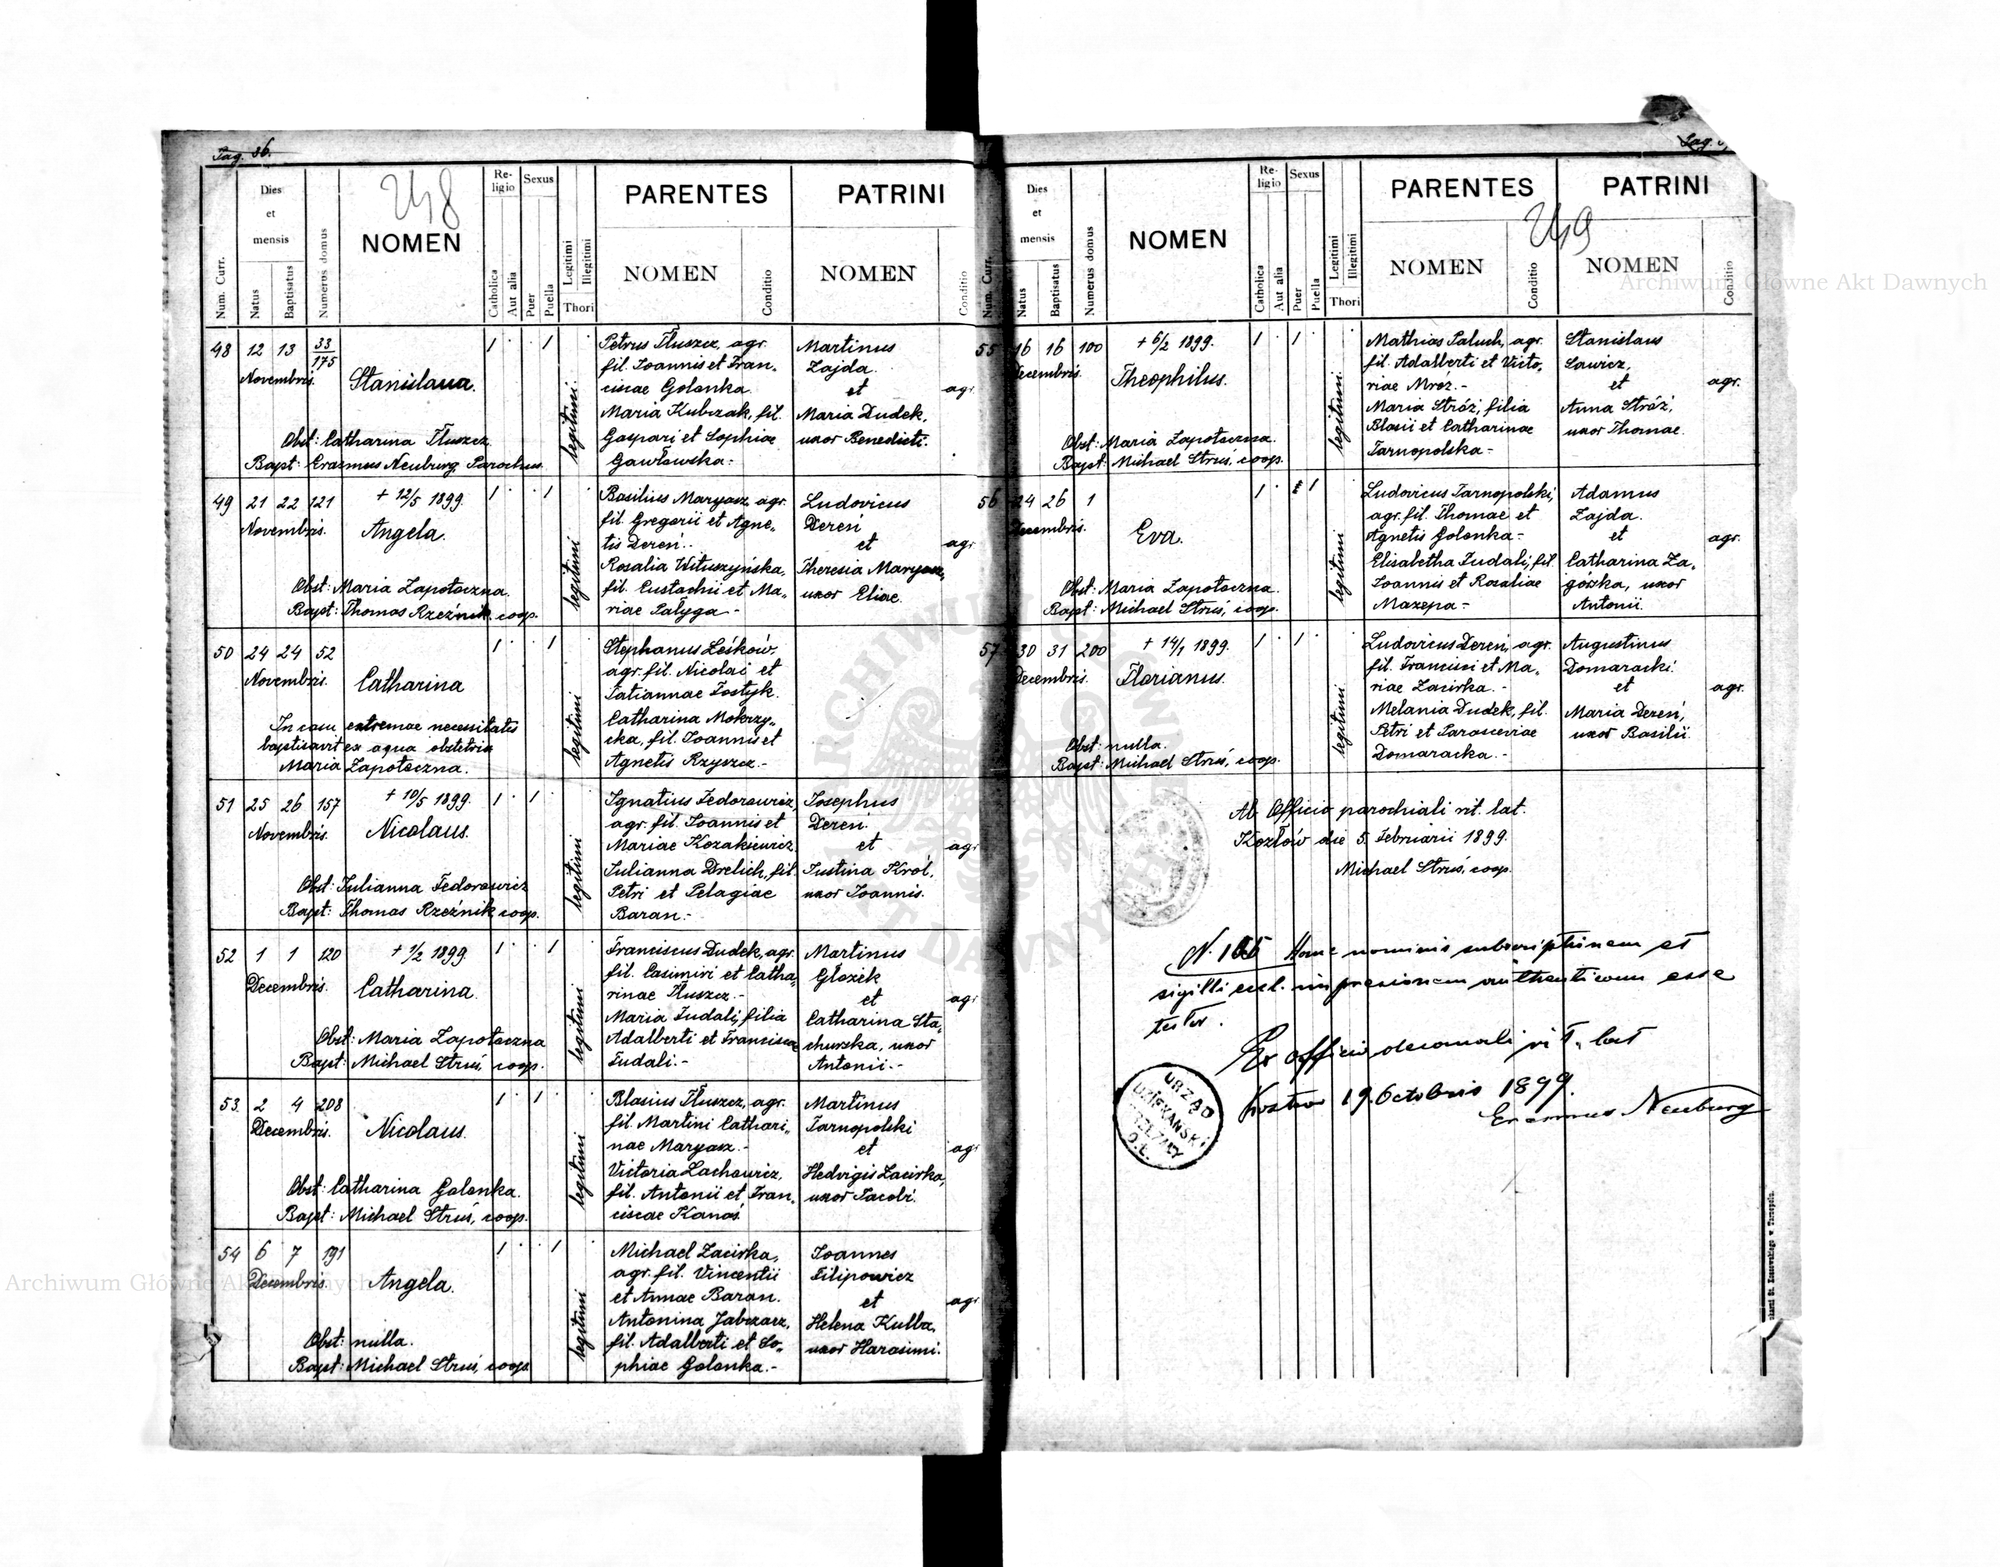 Pag. 86.
248
Num. Curr.
Dies
et
mensis
Natus
Baptisatus
Numerus domus
NOMEN
Religio
Catholica
Aut alia
Sexus
Puer
Puella
Legitimi
Illegitimi
Thori
PARENTES
NOMEN
Conditio
PATRINI
NOMEN
Conditio
48 12 13 33/175
Novembris.
Stanislaua.
Obst: Catharina Tłuszcz
Bapt: Erasmus Neuburg, Parochus
legitimi
Petrus Tłuszcz, agr.
fil. Joannis et Fran-
ciscae Golonka
Maria Kubczak, fil.
Gaspari et Sophiae
Gawłowska-
Martinus
Zajda.
et
Maria Dudek,
uxor Benedicti.
agr.
49 21 22 121
Novembris.
+ 12/5 1899.
Angela.
Obst: Maria Zapotoczna.
Bapt: Thomas Rzeźnik, coop.
legitimi
Basilius Maryasz, agr.
fil. Gregorii et Agne-
tis Dereń.-
Rosalia Wituszyńska,
fil. Eustachii et Ma-
riae Pałyga-
Ludovicus
Dereń
et
Theresia Maryasz,
uxor Eliae.
agr.
50 24 24 52
Novembris.
Catharina
In casu extremae necessitatis
baptisavit ex aqua obstetrix
Maria Zapotoczna.
legitimi
Stephanus Leśków,
agr. fil. Nicolai et
Tatiannae Fostyk.
Catharina Mokrzy-
cka, fil. Joannis et
Agnetis Rzyszcz.-
51 25 26 157
Novembris.
+ 10/5 1899.
Nicolaus.
Obst: Julianna Fedorowicz
Bapt: Thomas Rzeźnik coop.
legitimi
Ignatius Fedorowicz,
agr. fil. Joannis et
Mariae Kozakiewicz
Julianna Drelich, fil.
Petri et Pelagiae
Baran.-
Josephus
Dereń.
et
Justina Król,
uxor Joannis.
agr.
52 1 1 120
Decembris.
+ 1/2 1899.
Catharina.
Obst: Maria Zapotoczna
Bapt: Michael Struś, coop.
legitimi
Franciscus Dudek, agr.
fil. Casimiri et Catha-
rinae Tłuszcz.-
Maria Fudali, filia
Adalberti et Franciscae
Fudali.-
Martinus
Głozik
et
Catharina Sta-
churska, uxor
Antonii.-
agr.
53. 2 4 208
Decembris.
Nicolaus.
Obst: Catharina Golonka.
Bapt: Michael Struś, coop.
legitimi
Blasius Tłuszcz, agr.
fil. Martini Cathari-
nae Maryasz.-
Victoria Lachowicz,
fil. Antonii et Fran-
ciscae Kanaś
Martinus
Tarnopolski
et
Hedvigis Zacirka,
uxor Jacobi.
agr.
54 6 7 191
Decembris.
Angela.
Obst: nulla.
Bapt: Michael Struś, coop.
legitimi
Michael Zacirka,
agr. fil. Vincentii
et Annae Baran.
Antonina Jabczacz,
fil. Adalberti et So-
phiae Golonka.-
Joannes
Filipowicz
et
Helena Kulba,
uxor Harasimi.
agr.
249
Num. Curr.
Dies
et
mensis
Natus
Baptisatus
Numerus domus
NOMEN
Religio
Catholica
Aut alia
Sexus
Puer
Puella
Legitimi
Illegitimi
Thori
PARENTES
NOMEN
Conditio
PATRINI
NOMEN
Conditio
55 16 16 100
Decembris.
+ 6/2 1899.
Theophilus.
Obst: Maria Zapotoczna.
Bapt: Michael Struś, coop.
legitimi
Mathias Paluch, agr.
fil. Adalberti et Victo-
riae Mróz.-
Maria Stróż, filia
Blasii et Catharinae
Tarnopolska-
Stanislaus
Sawicz,
et
Anna Stróż,
uxor Thomae.
agr.
56 24 26 1
Decembris.
Eva.
Obst: Maria Zapotoczna.
Bapt: Michael Struś, coop.
legitimi
Ludovicus Tarnopolski,
agr. fil. Thomae et
Agnetis Golonka-
Elisabetha Fudali, fil.
Joannis et Rosaliae
Mazepa-
Adamus
Zajda.
et
Catharina Za-
górska, uxor
Antonii.
agr.
57 30 31 200
Decembris.
+ 14/1 1899.
Florianus.
Obst: nulla.
Bapt: Michael Struś, coop.
legitimi
Ludovicus Dereń, agr.
fil. Francisci et Ma-
riae Zacirka.-
Melania Dudek, fil.
Petri et Parasceviae
Domaracka.-
Augustinus
Domaracki
et
Maria Dereń,
uxor Basilii.
agr.
Ab Officio parochiali rit. lat.
Kozłów die 5. Februarii 1899.
Michael Struś, coop.
N. 165 Hanc nominis subscriptionem et
sigilli eccl. impressionem authenticam esse
testor.
Ex officio decanali rit. lat
19. Octobris 1899.
Erasmus Neuburg
URZĄD
DZIEKAŃSKI
O.Ł.
Archiwum Główne Akt Dawnych
Archiwum Główne Akt Dawnych
ARCHIWUM GŁÓWNE
AKT DAWNYCH